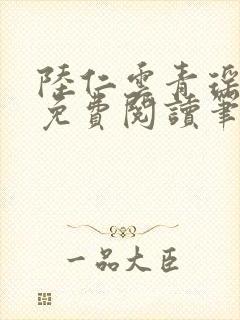 陸仁雲青瑶
免費閱讀筆
一品大臣